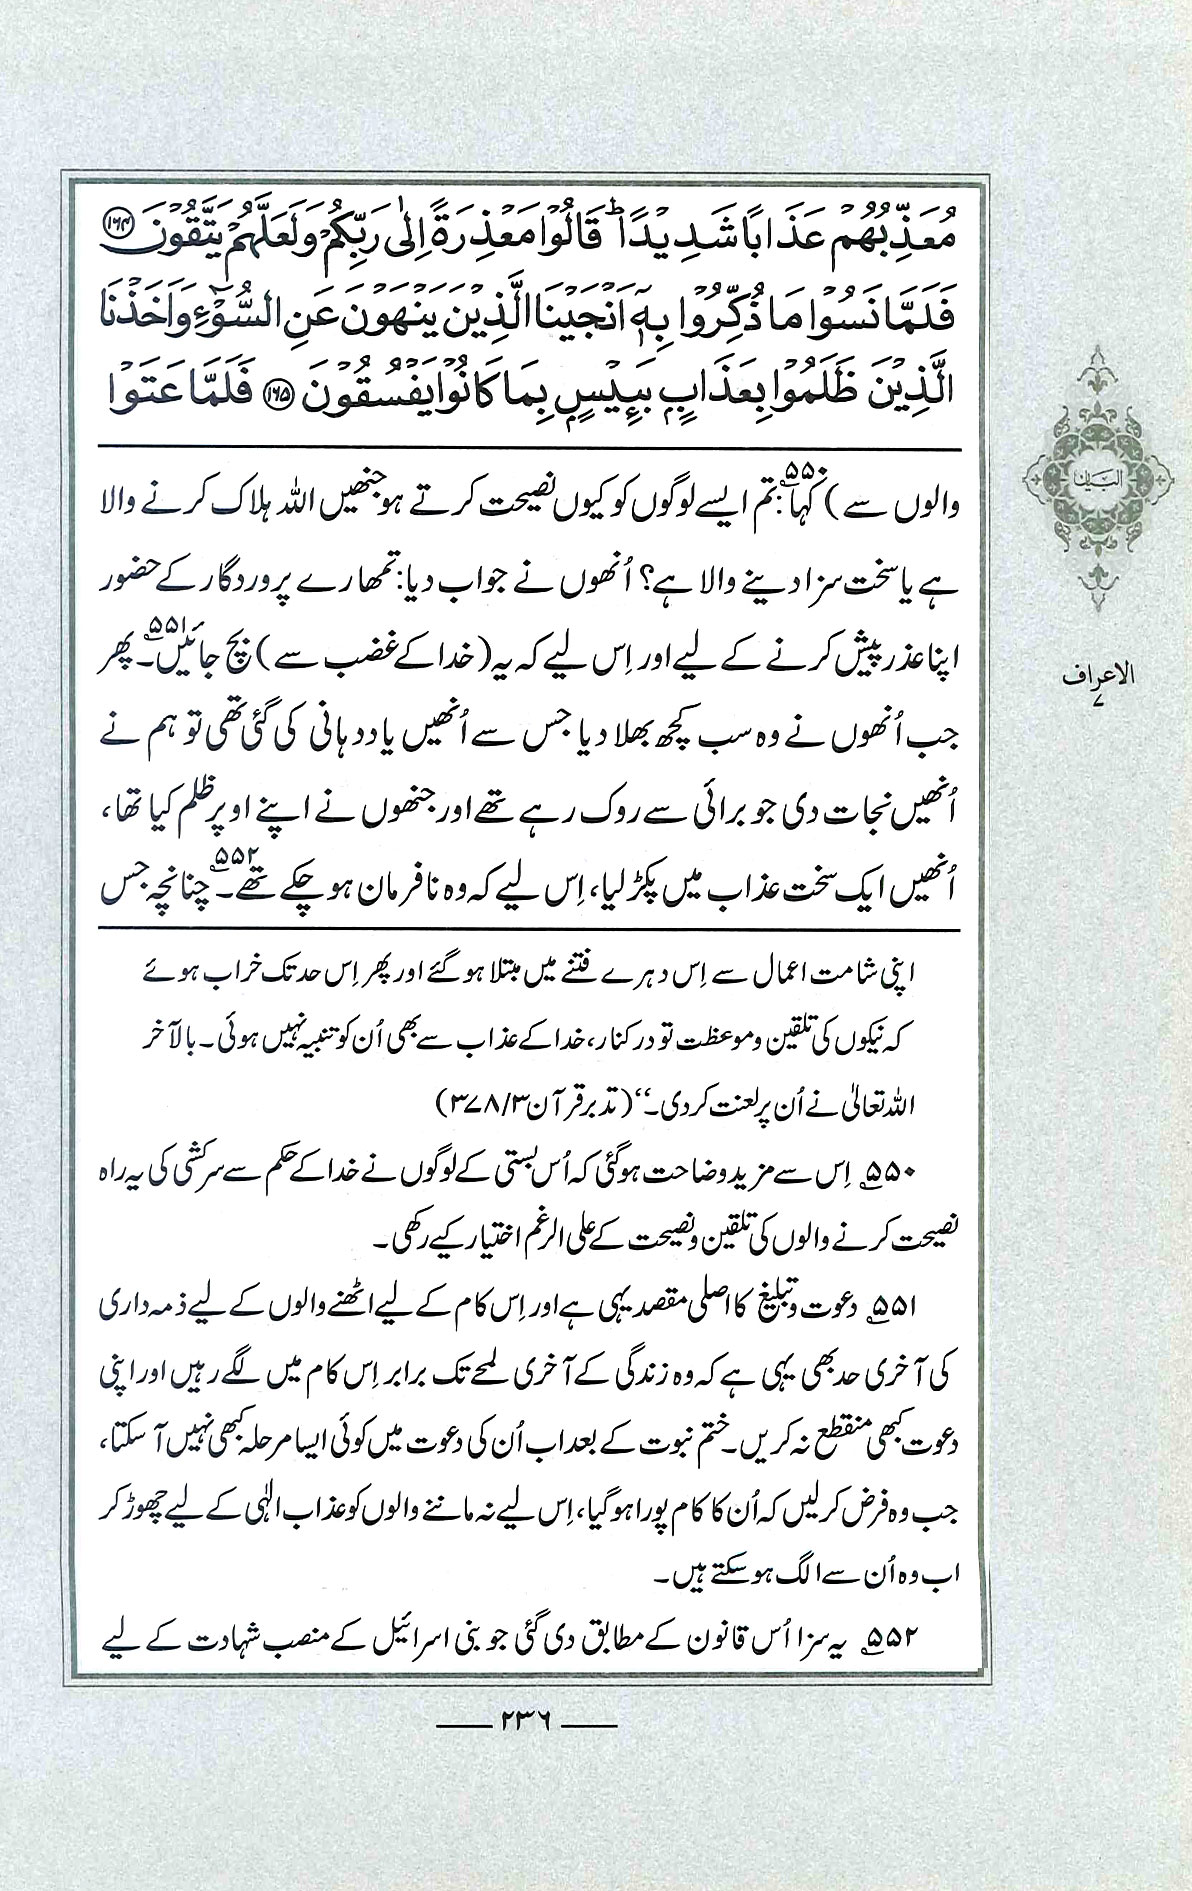 مُعَذِّبُهُمْ عَذَابًا شَدِيْدًا ؕ قَالُوْا مَعْذِرَةً اِلٰى رَبِّكُمْ وَلَعَلَّهُمْ يَتَّقُوْنَ ﴿۱۶۴﴾
فَلَمَّا نَسُوْا مَا ذُكِّرُوْا بِهٖٓ اَنْجَيْنَا الَّذِيْنَ يَنْهَوْنَ عَنِ السُّوْٓءِ وَاَخَذْنَا
الَّذِيْنَ ظَلَمُوْا بِعَذَابٍۭ بَـِٔيْسٍۭ بِمَا كَانُوْا يَفْسُقُوْنَ ﴿۱۶۵﴾ فَلَمَّا عَتَوْا
والوں سے) کہا:۵۵۰ تم ایسے لوگوں کو کیوں نصیحت کرتے ہو جنھیں اللہ ہلاک کرنے والا
ہے یا سخت سزا دینے والا ہے؟ اُنھوں نے جواب دیا: تمھارے پروردگار کے حضور
اپنا عذر پیش کرنے کے لیے اور اِس لیے کہ یہ (خدا کے غضب سے) بچ جائیں۔۵۵۱ پھر
جب اُنھوں نے وہ سب کچھ بھلا دیا جس سے اُنھیں یاددہانی کی گئی تھی تو ہم نے
اُنھیں نجات دی جو برائی سے روک رہے تھے اور جنھوں نے اپنے اوپر ظلم کیا تھا،
اُنھیں ایک سخت عذاب میں پکڑ لیا، اِس لیے کہ وہ نافرمان ہو چکے تھے۔۵۵۲ چنانچہ جس
اپنی شامت اعمال سے اِس دہرے فتنے میں مبتلا ہو گئے اور پھر اِس حد تک خراب ہوئے
کہ نیکوں کی تلقین و موعظت تو درکنار، خدا کے عذاب سے بھی اُن کو تنبیہ نہیں ہوئی۔ بالآخر
اللہ تعالیٰ نے اُن پر لعنت کر دی۔‘‘ (تدبر قرآن ۳/ ۳۷۸)
۵۵۰ اِس سے مزید وضاحت ہو گئی کہ اُس بستی کے لوگوں نے خدا کے حکم سے سرکشی کی یہ راہ
نصیحت کرنے والوں کی تلقین و نصیحت کے علی الرغم اختیار کیے رکھی۔
۵۵۱ دعوت و تبلیغ کا اصلی مقصد یہی ہے اور اِس کام کے لیے اٹھنے والوں کے لیے ذمہ داری
کی آخری حد بھی یہی ہے کہ وہ زندگی کے آخری لمحے تک برابر اِس کام میں لگے رہیں اور اپنی
دعوت کبھی منقطع نہ کریں۔ ختم نبوت کے بعد اب اُن کی دعوت میں کوئی ایسا مرحلہ کبھی نہیں آ سکتا،
جب وہ فرض کر لیں کہ اُن کا کام پورا ہو گیا، اِس لیے نہ ماننے والوں کو عذاب الٰہی کے لیے چھوڑ کر
اب وہ اُن سے الگ ہو سکتے ہیں۔
۵۵۲ یہ سزا اُس قانون کے مطابق دی گئی جو بنی اسرائیل کے منصب شہادت کے لیے
البیان
الاعراف
۷
۲۳۶